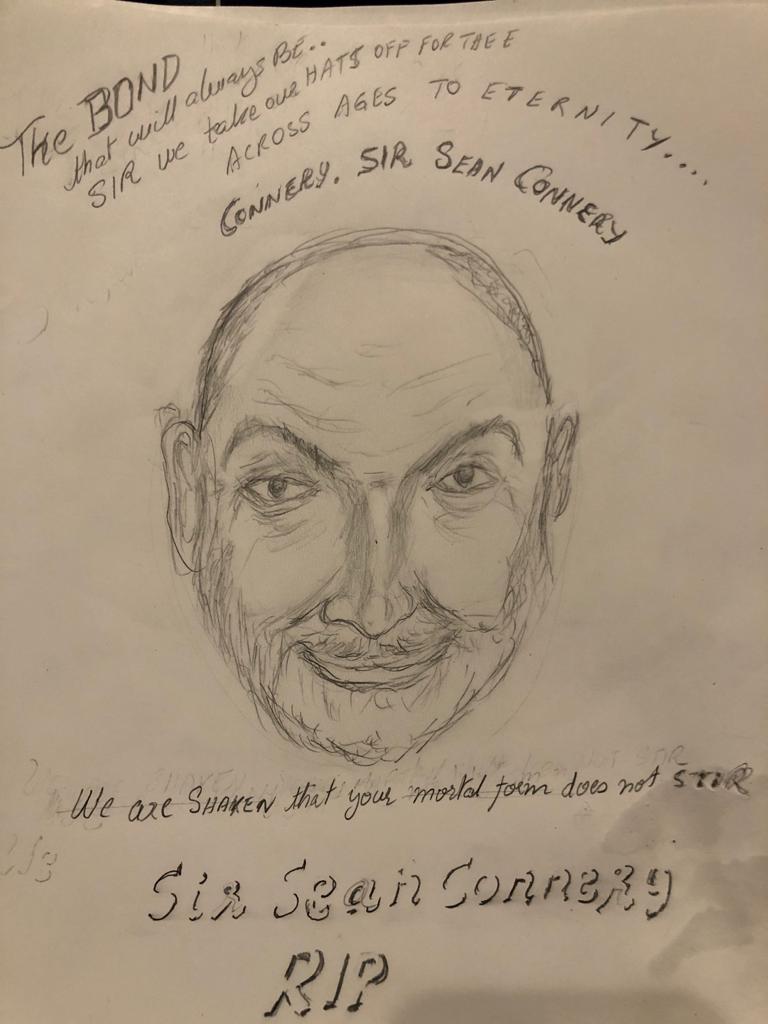 The BOND
that will always BE..
SIR we take our HATS OFF FOR THEE
ACROSS AGES TO ETERNITY....
CONNERY. SIR SEAN CONNERY
We are SHAKEN that your mortal form does not STIR
Sir Sean Connery
RIP